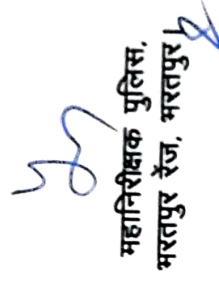 महानिरीक्षक पुलिस,
भरतपुर रेंज, भरतपुर।